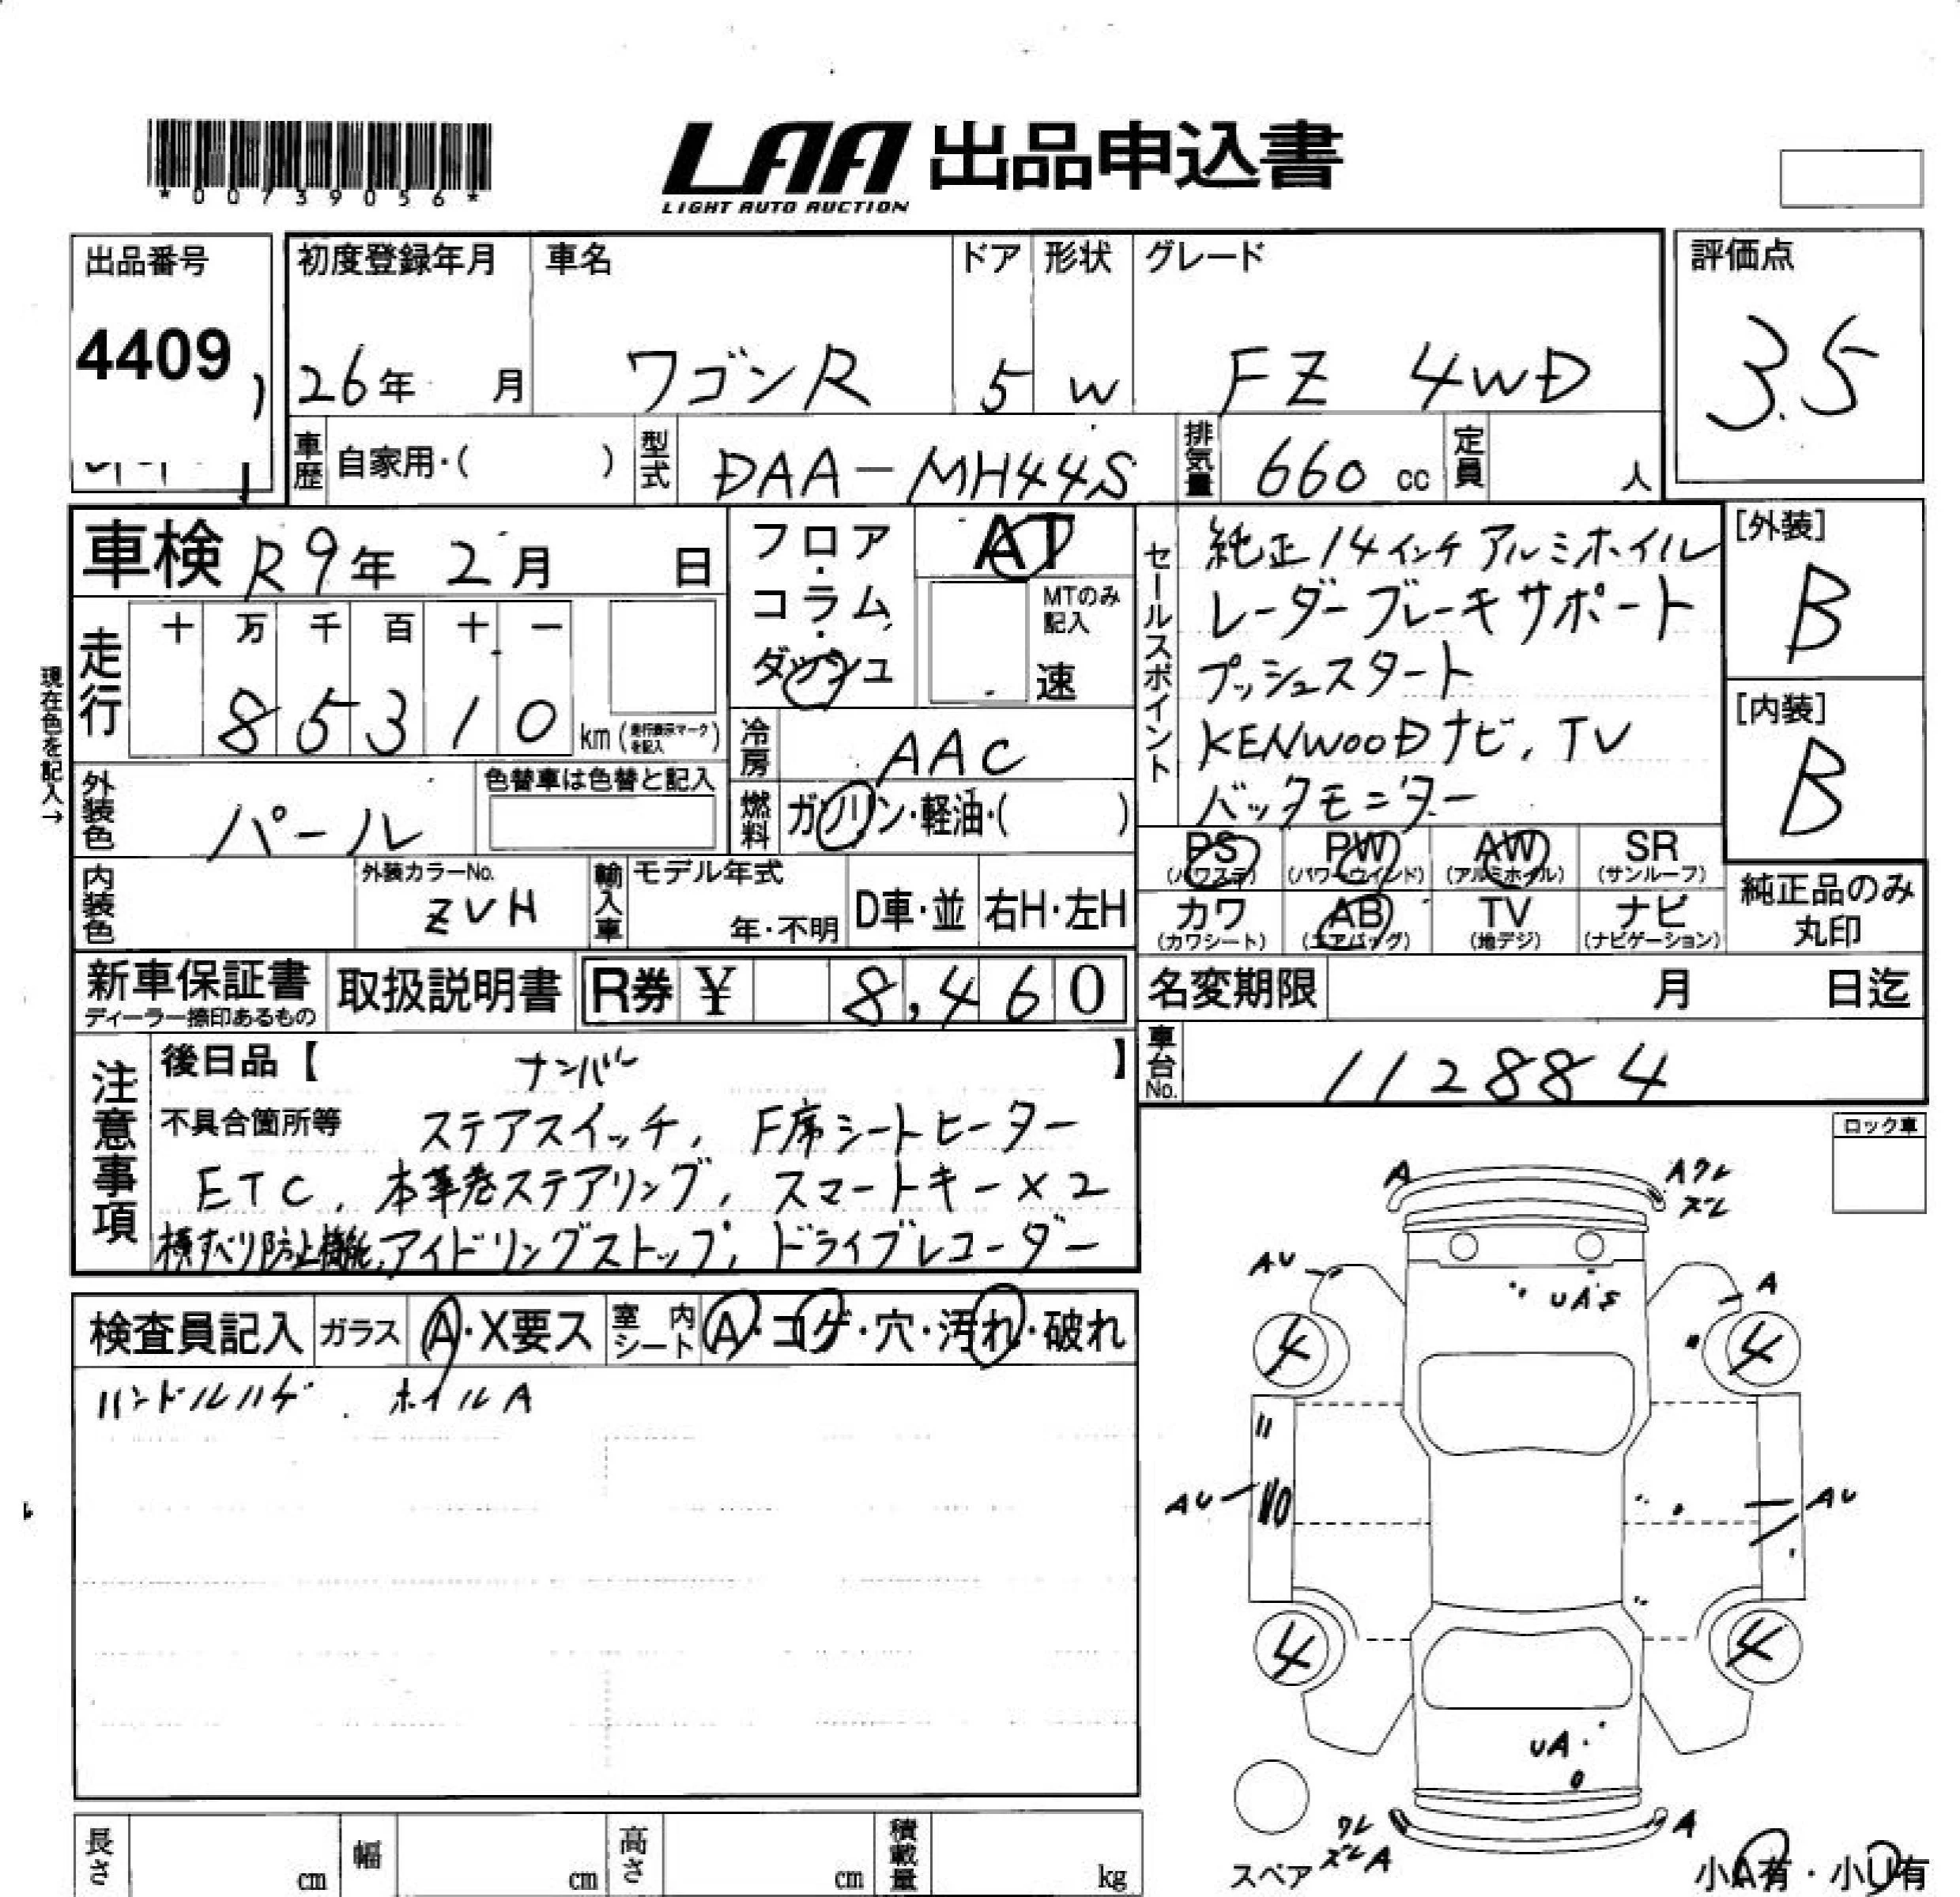 *00739056*
LAA 出品申込書
LIGHT AUTO AUCTION
出品番号
4409
初度登録年月
26年 月
車名
ワゴンR
ドア
5
形状
W
グレード
FZ 4WD
評価点
3.5
車歴 自家用・( )
型式 DAA-MH44S
排気量 660 cc
定員 人
車検 R9年 2月 日
走行
十 万 千 百 十 一
8 5 3 1 0 km (走行表示マークを記入)
現在色を記入→
外装色 パール
色替車は色替と記入
内装色
外装カラーNo.
ZVH
フロア・コラム・ダッシュ
AT
MTのみ記入
速
冷房 AAC
燃料 ガソリン・軽油・( )
輸入車
モデル年式
年・不明
D車・並
右H・左H
セールスポイント
純正14インチアルミホイル
レーダーブレーキサポート
プッシュスタート
KENWOODナビ、TV
バックモニター
[外装]
B
[内装]
B
PS
(パワステ)
PW
(パワーウインド)
AW
(アルミホイル)
SR
(サンルーフ)
カワ
(カワシート)
AB
(エアバッグ)
TV
(地デジ)
ナビ
(ナビゲーション)
純正品のみ
丸印
新車保証書
ディーラー捺印あるもの
取扱説明書
R券 ¥ 8,460
名変期限 月 日迄
車台No. 112884
注意事項
後日品【 ナンバー 】
不具合箇所等 ステアスイッチ、F席シートヒーター
ETC、本革巻ステアリング、スマートキー×2
横すべり防止機能、アイドリングストップ、ドライブレコーダー
ロック車
検査員記入
ガラス A・X要ス
室内シート A・コゲ・穴・汚れ・破れ
ハンドルハゲ . ホイルA
A
Aワレ
ズレ
AU
UA's
A
4
4
AU
AU
4
4
UA
ワレ
ズレA
A
スペア
小A有・小U有
長さ cm
幅 cm
高さ cm
積載量 kg